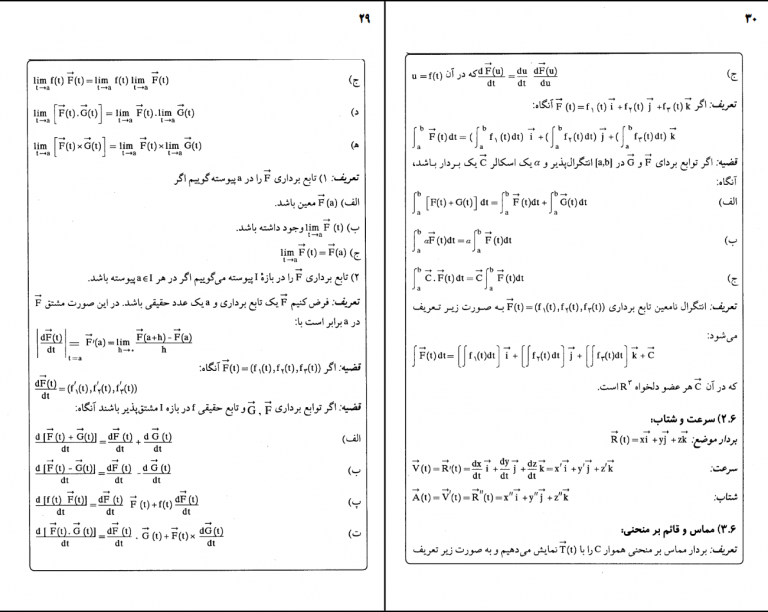 ۲۹
ج) lim_{t→a} f(t) F⃗(t) = lim_{t→a} f(t) lim_{t→a} F⃗(t)
د) lim_{t→a} [F⃗(t) . G⃗(t)] = lim_{t→a} F⃗(t) . lim_{t→a} G⃗(t)
ه) lim_{t→a} [F⃗(t) × G⃗(t)] = lim_{t→a} F⃗(t) × lim_{t→a} G⃗(t)
تعریف: ۱) تابع برداری F⃗ را در a پیوسته گوییم اگر
الف) F⃗(a) معین باشد.
ب) lim_{t→a} F⃗(t) وجود داشته باشد.
ج) lim_{t→a} F⃗(t) = F⃗(a)
۲) تابع برداری F⃗ را در بازهٔ I پیوسته می‌گوییم اگر در هر a∈I پیوسته باشد.
تعریف: فرض کنیم F⃗ یک تابع برداری و a یک عدد حقیقی باشد. در این صورت مشتق F⃗
در a برابر است با:
|dF⃗(t)/dt|_{t=a} = F⃗'(a) = lim_{h→۰} (F⃗(a+h) − F⃗(a))/h
قضیه: اگر F⃗(t) = (f₁(t), f₂(t), f₃(t)) آنگاه:
dF⃗(t)/dt = (f'₁(t), f'₂(t), f'₃(t))
قضیه: اگر توابع برداری F⃗ , G⃗ و تابع حقیقی f در بازه I مشتق‌پذیر باشند آنگاه:
الف) d[F⃗(t) + G⃗(t)]/dt = dF⃗(t)/dt + dG⃗(t)/dt
ب) d[F⃗(t) − G⃗(t)]/dt = dF⃗(t)/dt − dG⃗(t)/dt
پ) d[f(t) F⃗(t)]/dt = dF(t)/dt F⃗(t) + f(t) dF⃗(t)/dt
ت) d[F⃗(t) . G⃗(t)]/dt = dF⃗(t)/dt . G⃗(t) + F⃗(t) × dG⃗(t)/dt
۳۰
ج) dF⃗(u)/dt = du/dt dF⃗(u)/du که در آن u = f(t)
تعریف: اگر F⃗(t) = f₁(t) i⃗ + f₂(t) j⃗ + f₃(t) k⃗ آنگاه:
∫_a^b F⃗(t)dt = (∫_a^b f₁(t)dt) i⃗ + (∫_a^b f₂(t)dt) j⃗ + (∫_a^b f₃(t)dt) k⃗
قضیه: اگر توابع بردای F⃗ و G⃗ در [a,b] انتگرال‌پذیر و α یک اسکالر C⃗ یک بردار باشد،
آنگاه:
الف) ∫_a^b [F(t) + G(t)] dt = ∫_a^b F⃗(t)dt + ∫_a^b G⃗(t)dt
ب) ∫_a^b αF⃗(t)dt = α ∫_a^b F⃗(t)dt
ج) ∫_a^b C⃗ . F⃗(t)dt = C⃗ ∫_a^b F⃗(t)dt
تعریف: انتگرال نامعین تابع برداری F⃗(t) = (f₁(t), f₂(t), f₃(t)) به صورت زیر تعریف
می‌شود:
∫ F⃗(t)dt = [∫ f₁(t)dt] i⃗ + [∫ f₂(t)dt] j⃗ + [∫ f₃(t)dt] k⃗ + C⃗
که در آن C⃗ هر عضو دلخواه R³ است.
۲.۶) سرعت و شتاب:
بردار موضع: R⃗(t) = xi⃗ + yj⃗ + zk⃗
سرعت: V⃗(t) = R⃗'(t) = dx/dt i⃗ + dy/dt j⃗ + dz/dt k⃗ = x'i⃗ + y'j⃗ + z'k⃗
شتاب: A⃗(t) = V⃗'(t) = R⃗''(t) = x''i⃗ + y''j⃗ + z''k⃗
۳.۶) مماس و قائم بر منحنی:
تعریف: بردار مماس بر منحنی هموار C را با T⃗(t) نمایش می‌دهیم و به صورت زیر تعریف